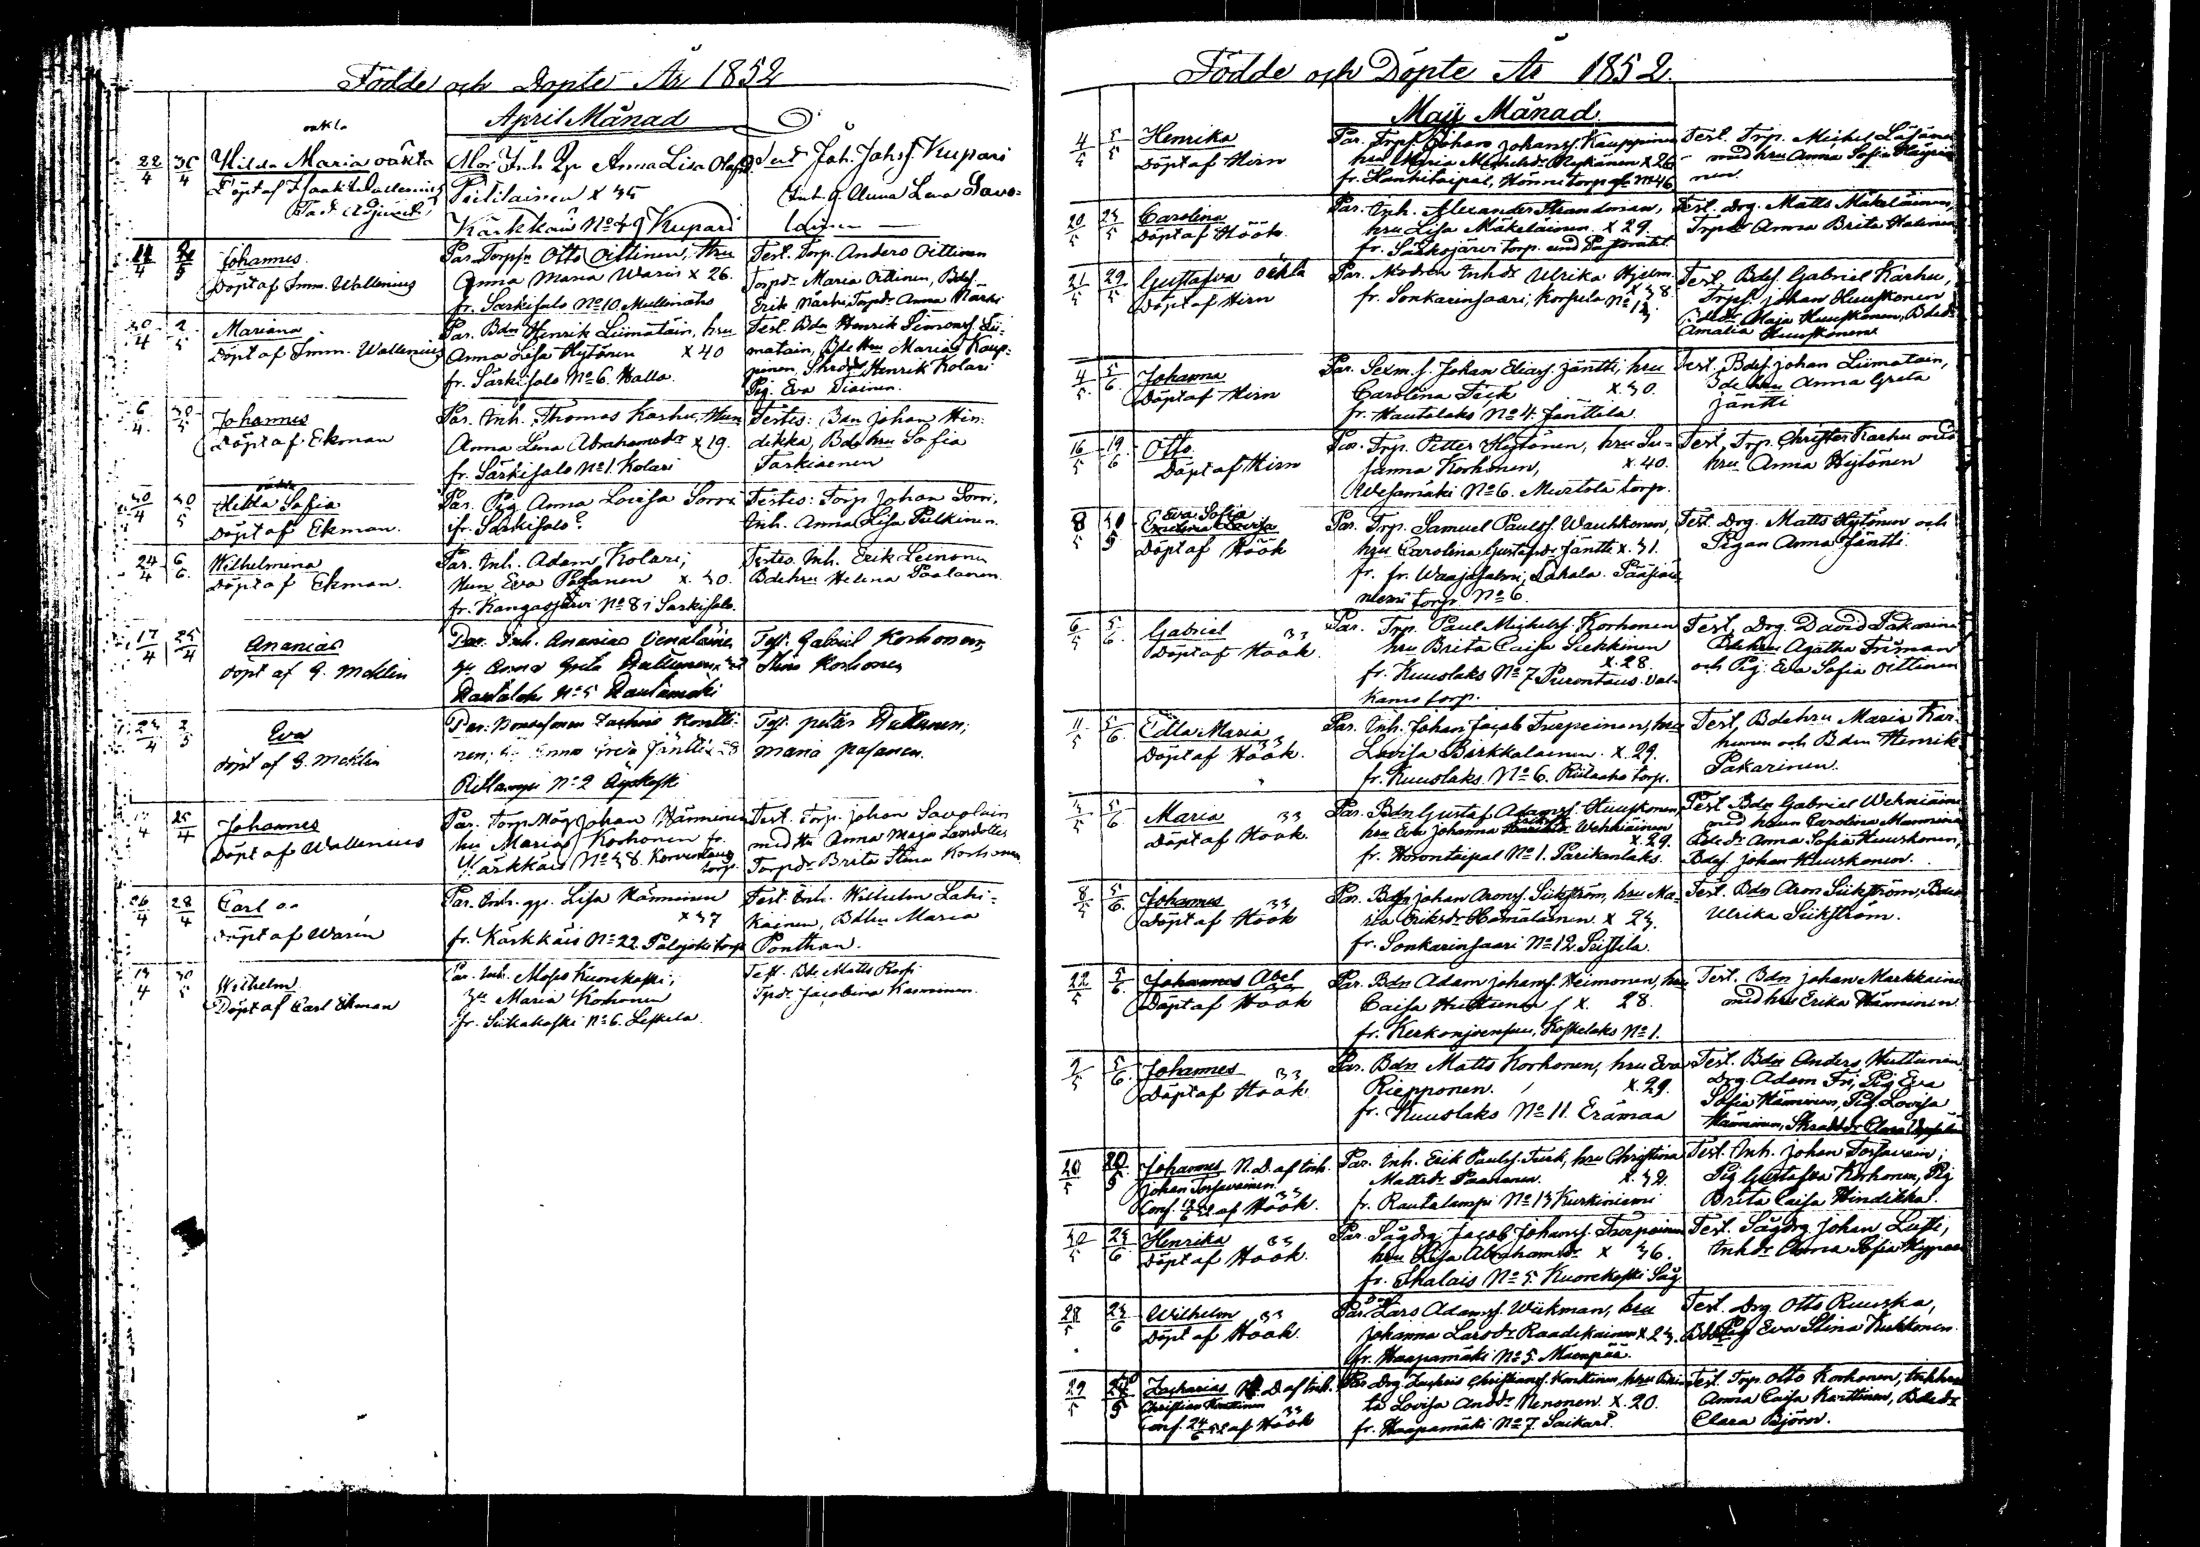 Födde och Döpte År 1852
April Månad
oäkta
22/4 30/4 Hilda Maria oäkta
Döpt af Isaak Wallenius
Past. Adjunct
Mor Inh. Anna Lisa Olofsdr
Piitilainen x 35
Kärkkäis No 48 Kupari
Test Joh. Johsf. Kupari
Inh. Q. Anna Lena Savo-
lainen
2/5
4
Johannes
Döpt af Imm. Wallenius
Par. Torpn Otto Oittinen, Hru
Anna Maria Waris x 26.
fr. Särkisalo No 10 Mullinaho
Test. Torp. Anders Oittinen
Torpdr Maria Oittinen, Bdsf.
Erik Närhi, Torpdr Anna Närhi
30/4 2/5 Mariana
Döpt af Imm. Wallenius
Par. Bdn Henrik Liimatain, hru
Anna Lisa Hytönen x 40
fr. Särkisalo No 6. Halla.
Test. Bdn Henrik Simonsf. Lii-
matain, Bde Hru Maria Kaup-
pinen, Henrik Kolari
Pig. Eva Piainen.
6/4 30/5 Johannes
Döpt af Ekman
Par. Inh. Thomas Karhu, Hun
Anna Lena Abrahamsdr x 19.
fr. Särkisalo No 1. Kolari
Testes: Bdn Johan Hin-
dikka, Bde hru Sofia
Tarkiaenen
oäkta
30/4 30/5 Hilda Sofia
Döpt af Ekman.
Par. Pig. Anna Lovisa Sorri
fr. Särkisalo
Testes: Torp. Johan Sorri,
Inh. Anna Lisa Pulkinen.
24/4 6/6 Wilhelmina
Döpt af Ekman.
Par. Inh. Adam Kolari;
Hun Eva Pasanen x. 30.
fr. Kangasjärvi No 8 i Särkisalo.
Testes. Inh. Erik Leinonen
Bdehru Helena Paalanen
17/4 25/4 Ananias
döpt af G. Meklin
Par. Inh. Ananias Venäläinen
hu Anna Greta
Rautalaks No 5 Rautamäki
Test. Gabriel Korhonen
Stina Korhonen
24/4 2/5 Eva
döpt af G. Meklin
Par. Zachris Kontti-
nen, Anna Greta Jäntti x 28
No 2
Test. Peter Huttunen,
Maria Pasanen.
25/4
4
Johannes
Döpt af Wallenius
Par. Torp. Måg Johan Hänninen
hu Maria Korhonen fr.
Kärkkäis No 38.
torp.
Test. Torp. Johan Savolain
med Hu Anna Maja
Torpdr Brita Stina Korhonen
26/4 28/4 Carl oä
Döpt af Warén
Par. Inh. qp. Lisa Hänninen
x 37
fr. Kärkkäis No 22. torp
Test. Inh. Wilhelm Lahi-
kainen, Bdhu Maria
Ponthan.
13/4 30/5 Wilhelm.
Döpt af Carl Ekman
Par. Inh. Moses Kuorekoski;
Hu Maria Korhonen
fr. Siikakoski No 6. Leskela
Test. Bde Matts
Tpdr Jacobina Kanninen.
Födde och Döpte År 1852.
Maji Månad
4/5 5/5 Henrika
Döpt af Hirn
Par. Trpsf. Johan Johansf. Kauppinen
hru Maria Michelsdr Nykänen x 26
fr. Hankitaipal, Könni torp No 46
Test. Trp. Michel Läsänen
med hru Anna Sofia Häyri-
nen
20/5 23/5 Carolina
Döpt af Höök
Par. Inh. Alexander Strandman,
hru Lisa Mäkeläinen x 29.
fr. Särkisjärvi torp und. Pastoratet
Test. Drg. Matts Mäkeläinen,
Trpdr Anna Brita Halinen
21/5 29/5 Gustafva oäkta
Döpt af Hirn
Par. Modren Inhdr Ulrika Hjelm
x 38
fr. Sonkarinsaari, Korpela No 13.
Test. Bdsf. Gabriel Karhu,
Trpsf. Johan Huuskonen
Maja Huuskonen, Bdedr
Amalia Huuskonen
4/5 5/6 Johanna
Döpt af Hirn
Par. Sexm. f. Johan Eliasf. Jäntti, hru
Carolina Teik x 30.
fr. Hautalaks No 4. Jänttila
Test. Bdsf. Johan Liimatain,
Bde hru Anna Greta
Jäntti
16/5 19/6 Otto
Döpt af Hirn
Par. Trp. Petter Hytönen, hru Su-
sanna Korhonen, x. 40.
Wesamäki No 6. Murtola torp.
Test. Trp. Christer Karhu med
hru Anna Hytönen
8/5 30/5 Eva Sofia
Döpt af Höök
Par. Trp. Samuel Paulsf. Wauhkonen,
hru Carolina Gustafsdr Jäntti x. 31.
fr. fr. Waajasalmi, Lahala. Pääsiäis-
niemi torp. No 6.
Test. Drg. Matts Hytönen och
Pigan Anna Jäntti.
6/5 5/6 Gabriel
Döpt af Höök.
Par. Trp. Paul Michelsf. Korhonen
hru Brita Caisa Siekkinen
x. 28.
fr. Kuuslaks No 7 Purontaus. Val-
kamo torp.
Test. Drg. David Pakarinen
Bdehru Agatha Friman
och Pig. Eva Sofia Oittinen
11/5 5/6 Edla Maria
Döpt af Höök.
Par. Inh. Johan Jacob Turpeinen, hru
Lovisa Barkkalainen. x. 29.
fr. Kuuslaks. No 6. Riilaaho torp.
Test. Bdehru Maria Kar-
hunen och Bdn Henrik
Pakarinen.
3/5 5/6 Maria
Döpt af Höök
Par. Bdn Gustaf Adamsf. Huuskonen,
hru Eva Johanna Wehniäinen
x. 29.
fr. Horontaipal No 1. Parikanlaks.
Test. Bdn Gabriel Wehniäinen
med hrun Carolina Manninen
Bdedr Anna Sofia Huuskonen,
Bdsf. Johan Huuskonen.
8/5 5/6 Johannes
Döpt af Höök
Par. Bdn Johan Aronsf. Siikström, hru Ma-
ria Eriksdr Hämäläinen. x 23.
fr. Sonkarinsaari No 12. Leistila.
Test. Bdn Aron Siikström, Bdedr
Ulrika Siikström.
22/5 5/6 Johannes Abel
Döpt af Höök
Par. Bdn Adam Johansf. Heimonen, hru
Caisa Huttunen x. 28.
fr. Kerkonjoensuu, Koskelaks No 1.
Test. Bdn Johan Markkainen
med hru Erika Hänninen.
2/5 5/6 Johannes
Döpt af Höök
Par. Bdn Matts Korhonen, hru Eva
Riepponen. x. 29.
fr. Kuuslaks No 11. Erämaa
Test. Bdn Anders Huttunen
Drg. Adam Fri, Pig. Eva
Sofia Hänninen, Pig. Lovisa
Hänninen, Clara
20/5 20/5 Johannes N. D. af Inh.
Johan Torsavainen
Conf. af Höök.
Par. Inh. Erik Paulsf. Turk, hru Christina
Mattsdr Paananen. x. 32.
fr. Rautalampi No 13 Kurkiniemi
Test. Inh. Johan Torsavain;
Pig Gustafva Korhonen, Pig
Brita Caisa Hindikka.
30/5 23/6 Henrika
Döpt af Höök.
Par. Sågdrg Jacob Johansf. Turpeinen
hru Lisa Abrahamsdr x 36.
fr. Skalais No 5. Kuorekoski Såg
Test. Sågdrg Johan Lusti,
Inhdr Anna Sofia Kypärä
28/5 23/6 Wilhelm
Döpt af Höök.
Par. Lars Adamsf. Wiikman, hru
Johanna Larsdr Raadikainen x 23.
fr. Haapamäki No 5. Mäenpää.
Test. Drg. Otto Ruuska,
Pig Eva Stina Kukkonen
29/5 Zacharias N. D af Inh.
Christian Konttinen
Conf. 24/6 52 af Höök
Par. Drg. Zachris Christiansf. Konttinen, hru Bri-
ta Lovisa Andsdr Nenonen x. 20.
fr. Haapamäki No 7. Saikari.
Test. Trp. Otto Korhonen, Inhhru
Anna Caisa Karttinen, Bdedr
Clara Björn.